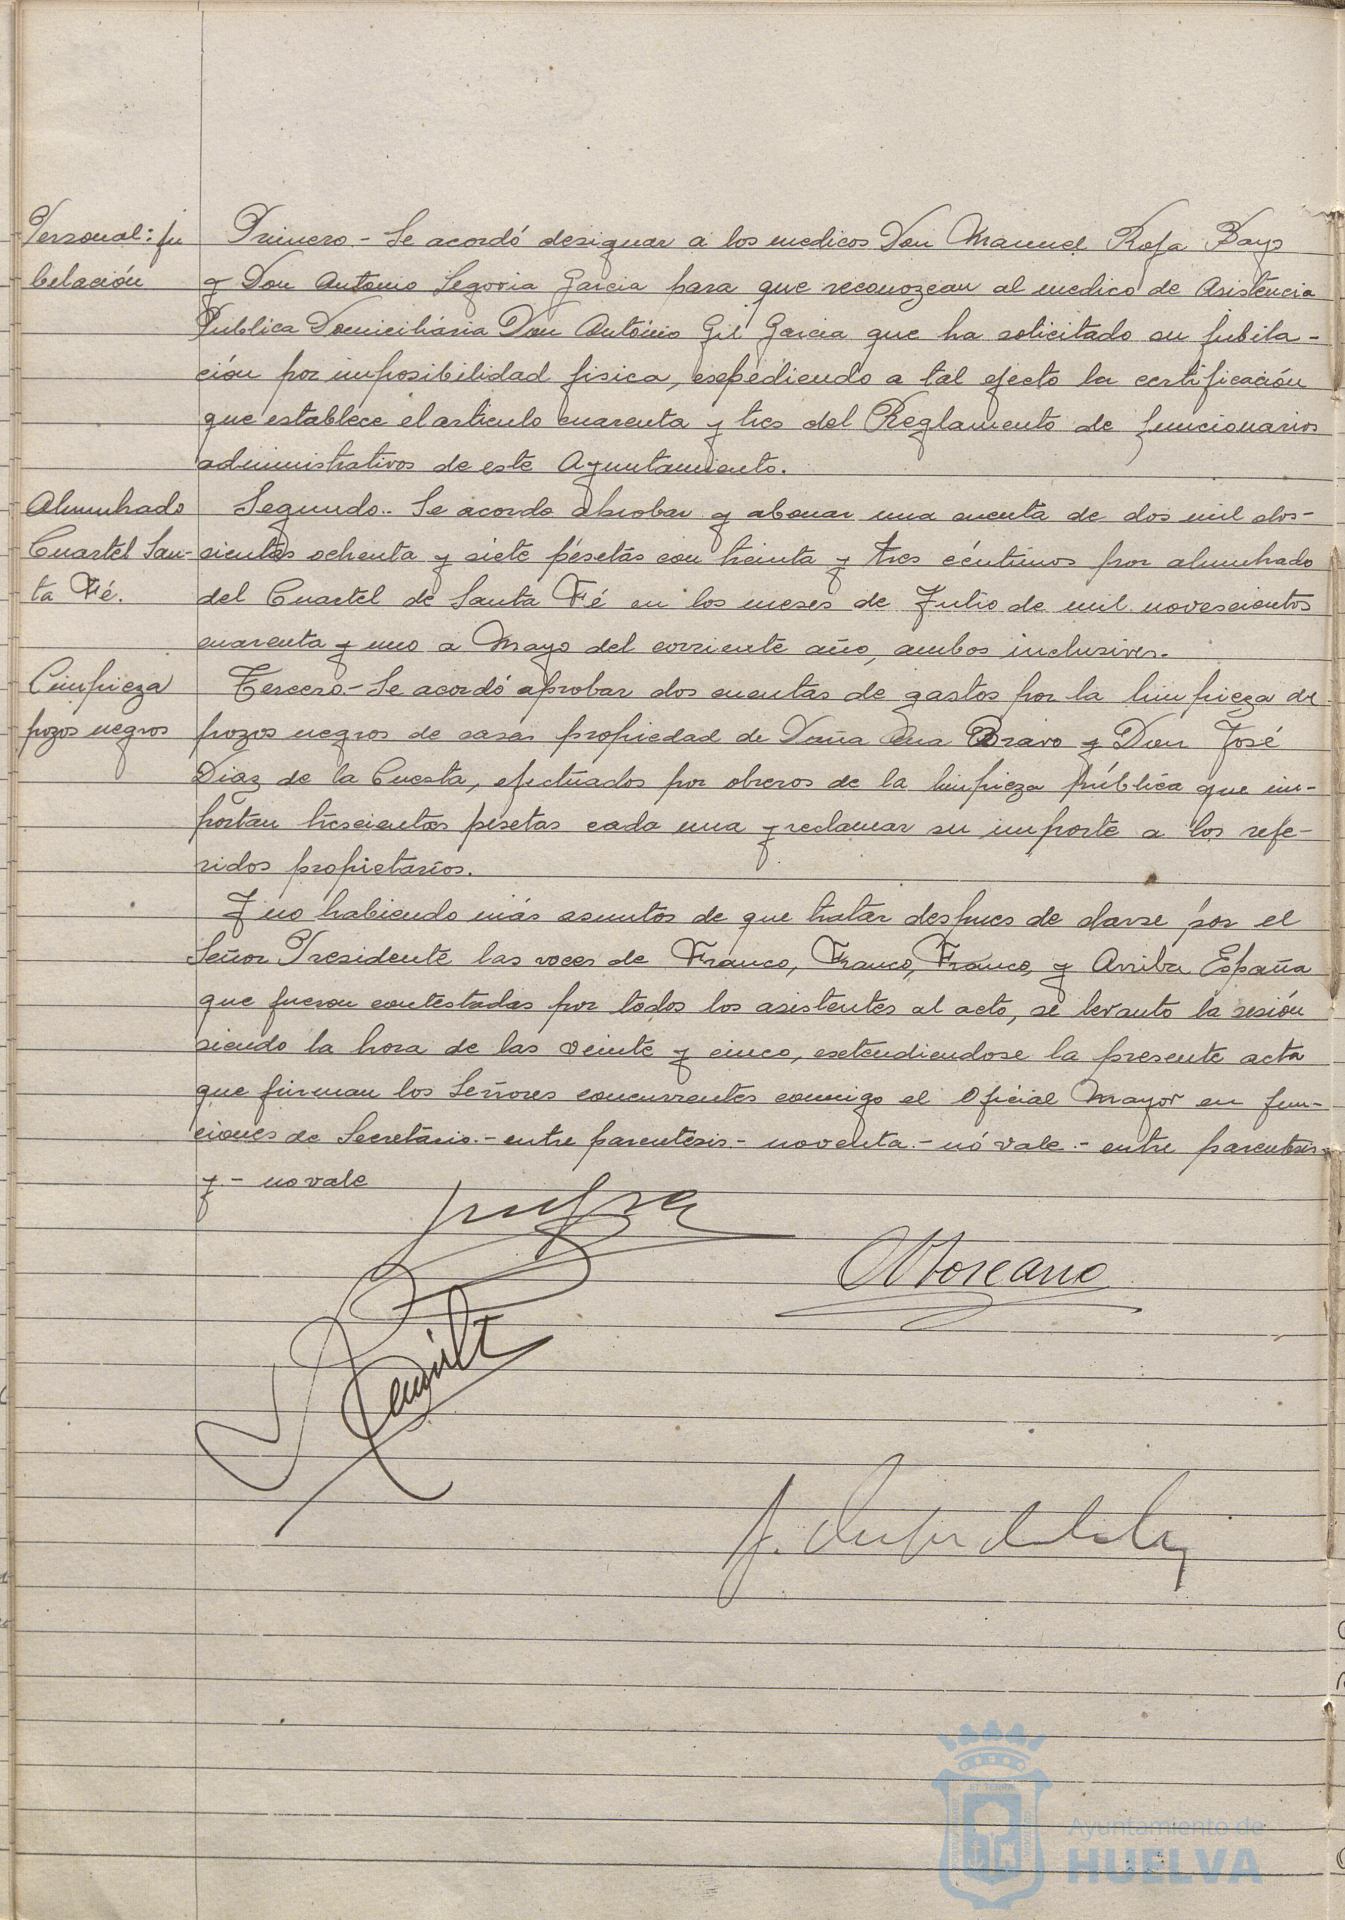 Personal: ju
bilación
Primero.- Se acordó designar a los medicos Don Manuel Rofa Bayo
y Don Antonio Segovia Garcia para que reconozcan al medico de Asistencia
Publica Domiciliaria Don António Gil Garcia que ha solicitado su jubila-
ción por imposibilidad fisica, expediendo a tal efecto la certificación
que establece el articulo cuarenta y tres del Reglamento de funcionarios
administrativos de este Ayuntamiento.
Alumbrado
Cuartel San-
ta Fé.
Segundo.- Se acordo aprobar y abonar una cuenta de dos mil dos-
cientas ochenta y siete pesetas con treinta y tres céntimos por alumbrado
del Cuartel de Santa Fé en los meses de Julio de mil novescientos
cuarenta y uno a Mayo del corriente año, ambos inclusives.
Limpieza
pozos negros
Tercero.- Se acordó aprobar dos cuentas de gastos por la limpieza de
pozos negros de casas propiedad de Doña Ana Bravo y Don José
Diaz de la Cuesta, efectuados por obreros de la limpieza pública que im-
portan trescientas pesetas cada una y reclamar su importe a los refe-
ridos propietarios.
Y no habiendo más asuntos de que tratar despues de darse por el
Señor Presidente las voces de Franco, Franco, Franco, y Arriba España
que fueron contestadas por todos los asistentes al acto, se levanto la sesión
siendo la hora de las veinte y cinco, extendiendose la presente acta
que firman los Señores concurrentes conmigo el Oficial Mayor en fun-
ciones de Secretario.- entre parentesis.- noventa.- nó vale.- entre parentesis-
y.- no vale
ET TERRA
Ayuntamiento de
HUELVA